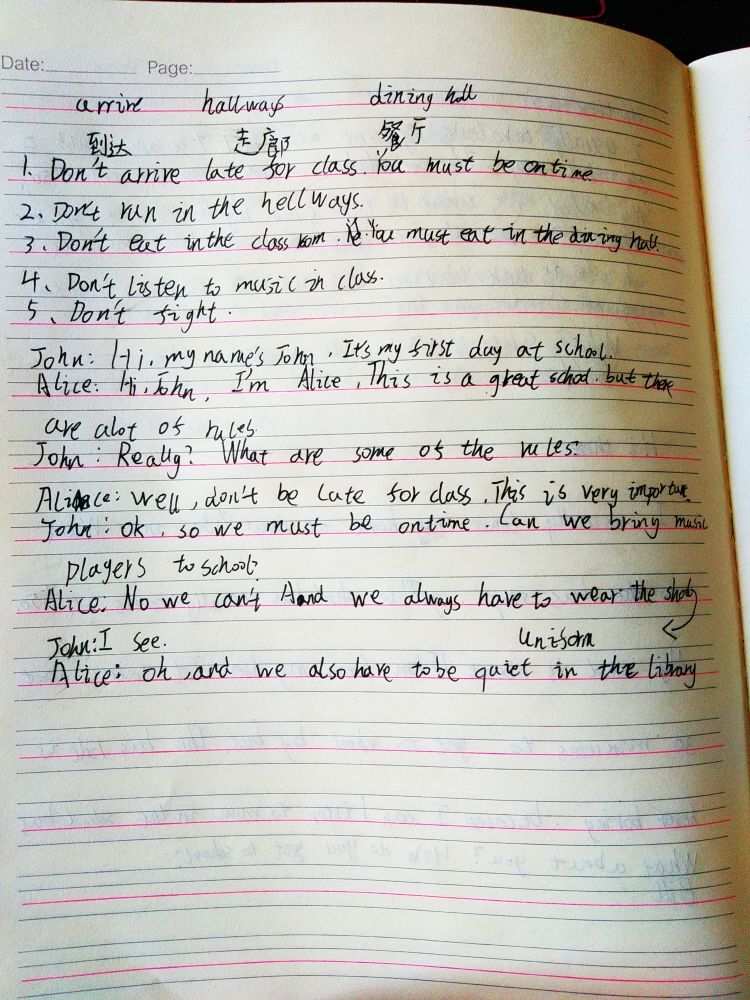 Date: Page:
arrive hallways dining hall
到达 走廊 餐厅
1. Don't arrive late for class. You must be ontime.
2. Don't run in the hellways.
3. Don't eat in the class room. You must eat in the dining hall.
4. Don't listen to music in class.
5. Don't fight.
John: Hi, my name's John. It's my first day at school.
Alice: Hi, John, I'm Alice, This is a great school. but there
are alot of rules
John: Really? What are some of the rules?
Alice: Well, don't be late for class. This is very important
John: ok, so we must be ontime. Can we bring music
players to school?
Alice: No we can't And we always have to wear the school
John: I see. uniform
Alice: oh, and we also have to be quiet in the library